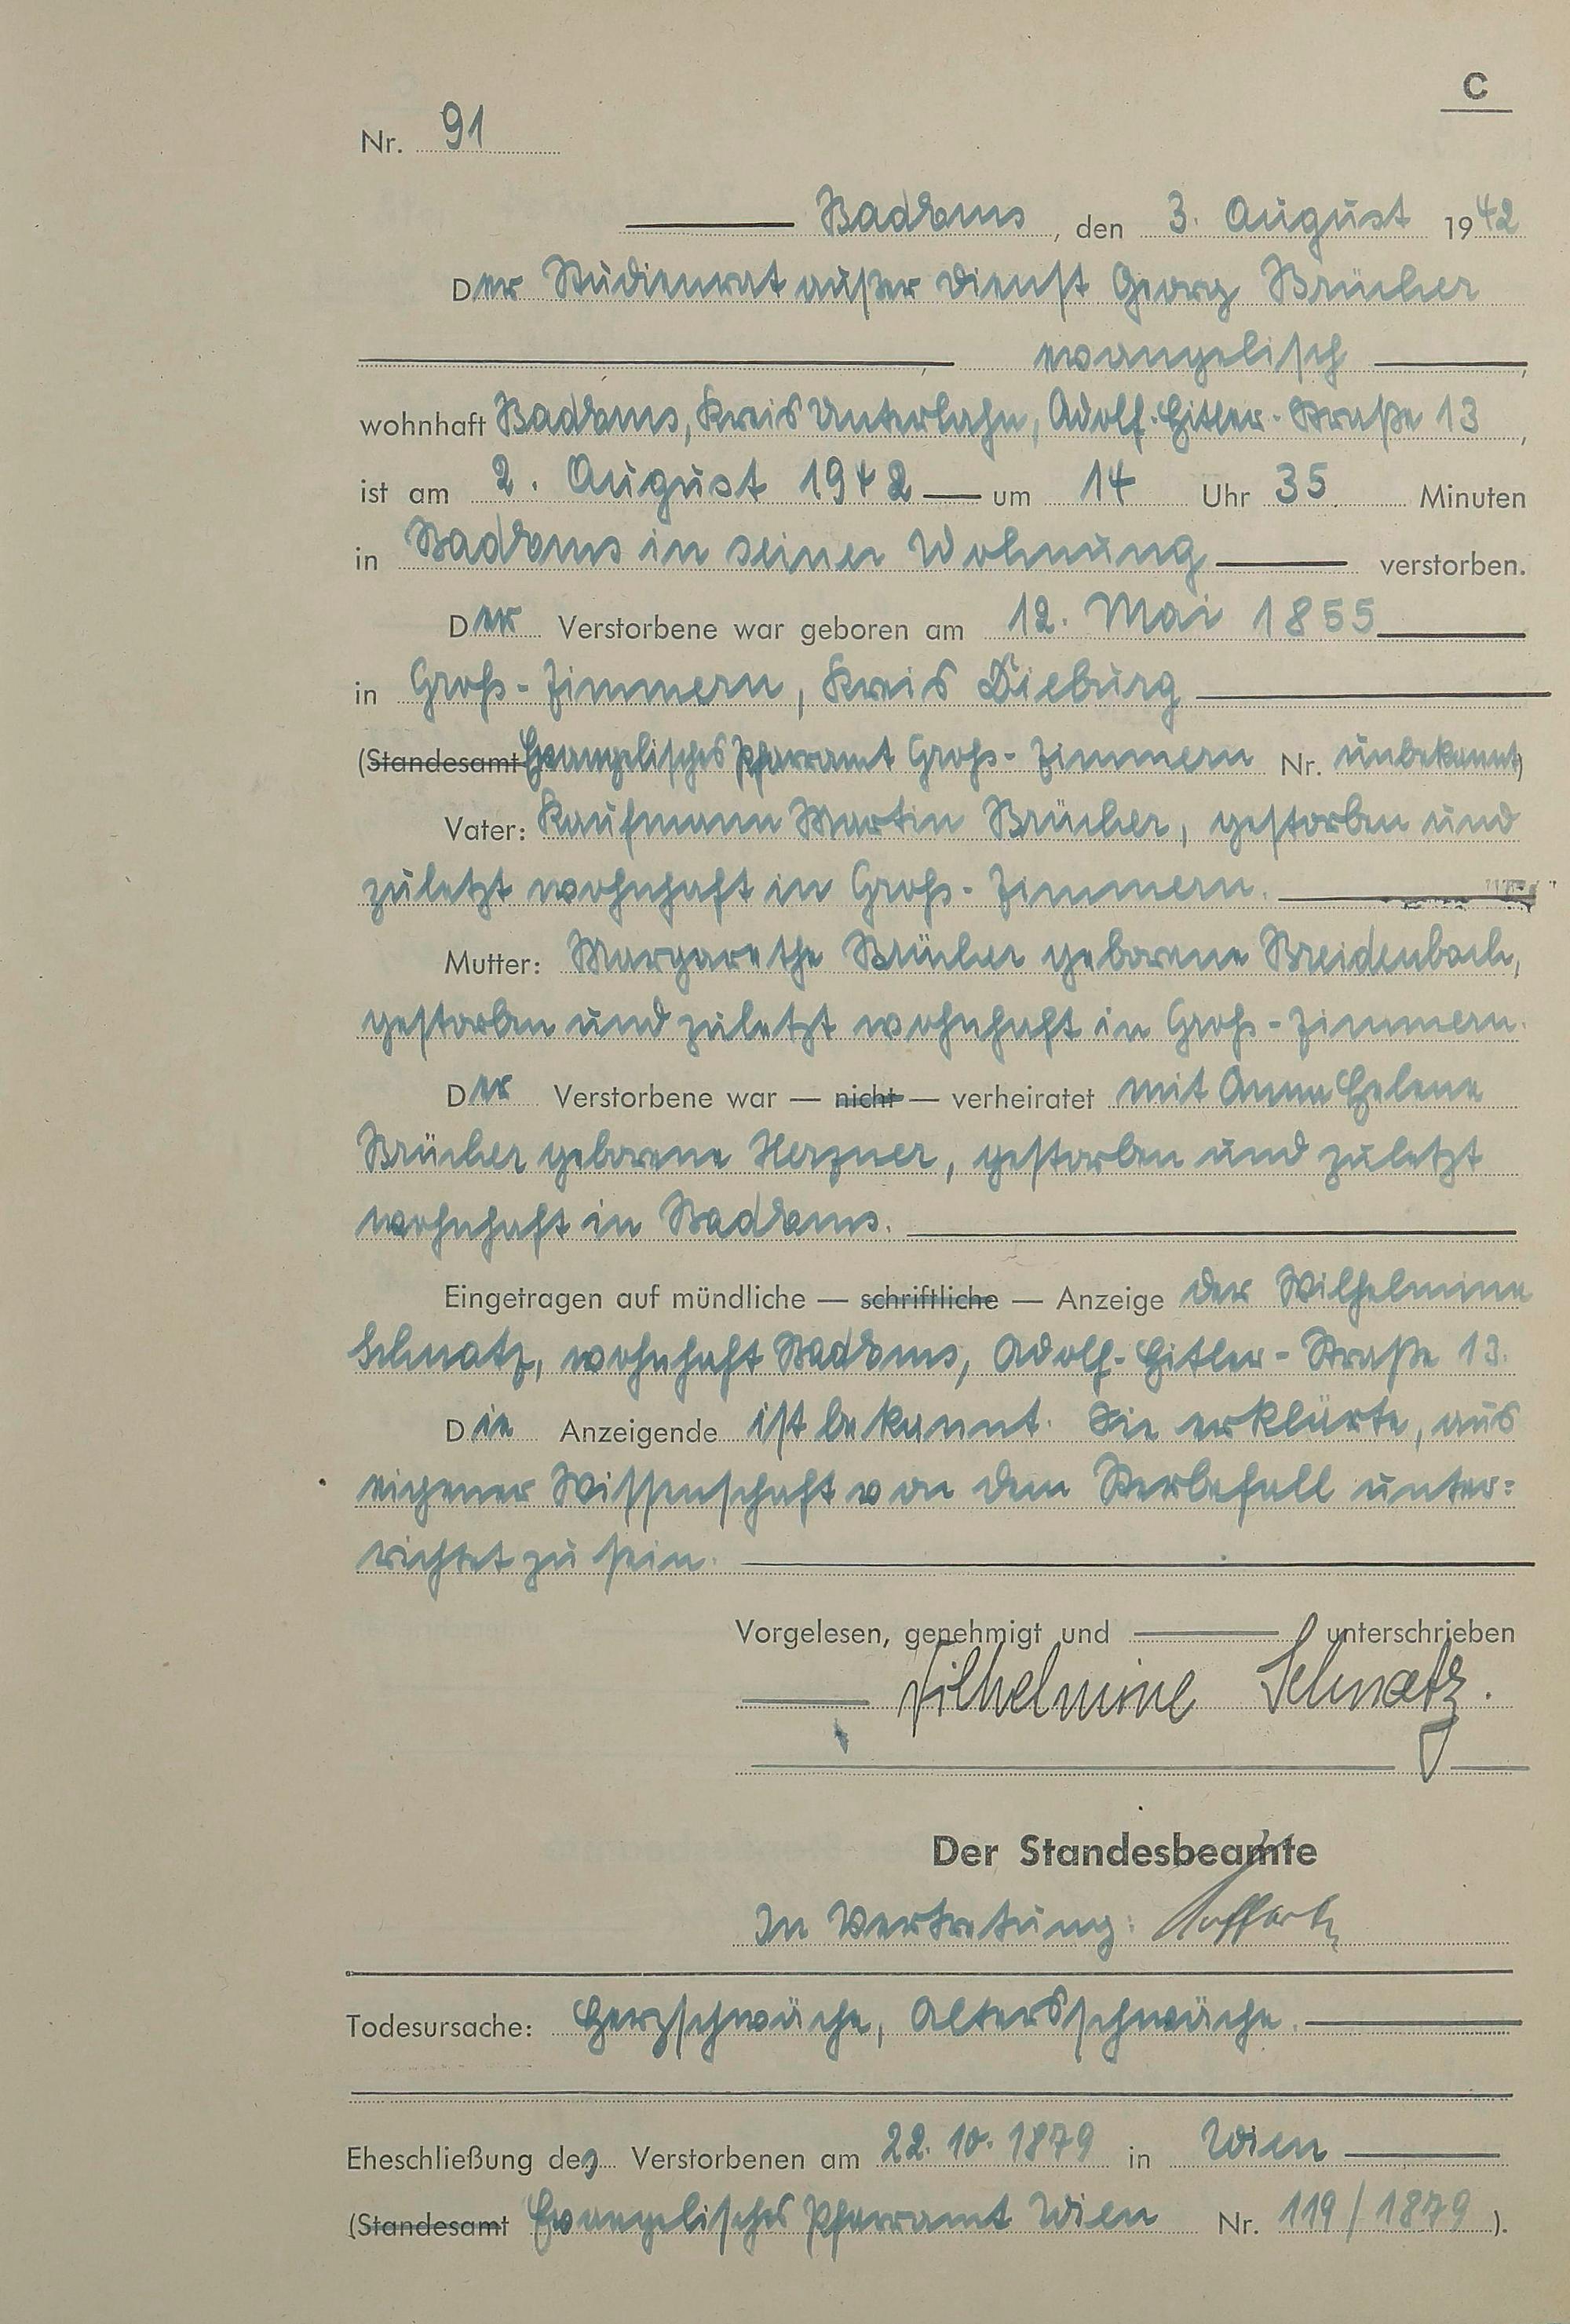 C
Nr. 91
Bad Ems, den 3. August 1942
Der Studienrat außer Dienst Georg Brücher
evangelisch,
wohnhaft Bad Ems, Kreis Unterlahn, Adolf-Hitler-Straße 13,
ist am 2. August 1942 um 14 Uhr 35 Minuten
in Bad Ems in seiner Wohnung verstorben.
Der Verstorbene war geboren am 12. Mai 1855
in Groß-Zimmern, Kreis Dieburg
(Standesamt Evangelisches Pfarramt Groß-Zimmern Nr. unbekannt)
Vater: Kaufmann Martin Brücher, gestorben und
zuletzt wohnhaft in Groß-Zimmern.
Mutter: Margarethe Brücher geborene Breidenbach,
gestorben und zuletzt wohnhaft in Groß-Zimmern.
Der Verstorbene war — nicht — verheiratet mit Anna Helene
Brücher geborene Herzner, gestorben und zuletzt
wohnhaft in Bad Ems.
Eingetragen auf mündliche — schriftliche — Anzeige der Wilhelmine
Schnatz, wohnhaft Bad Ems, Adolf-Hitler-Straße 13.
Die Anzeigende ist bekannt. Sie erklärte, aus
eigener Wissenschaft von dem Sterbefall unter=
richtet zu sein.
Vorgelesen, genehmigt und unterschrieben
Wilhelmine Schnatz.
Der Standesbeamte
In Vertretung:
Todesursache: Herzschwäche, Altersschwäche.
Eheschließung des Verstorbenen am 22.10.1879 in Wien
(Standesamt Evangelisches Pfarramt Wien Nr. 119/1879).